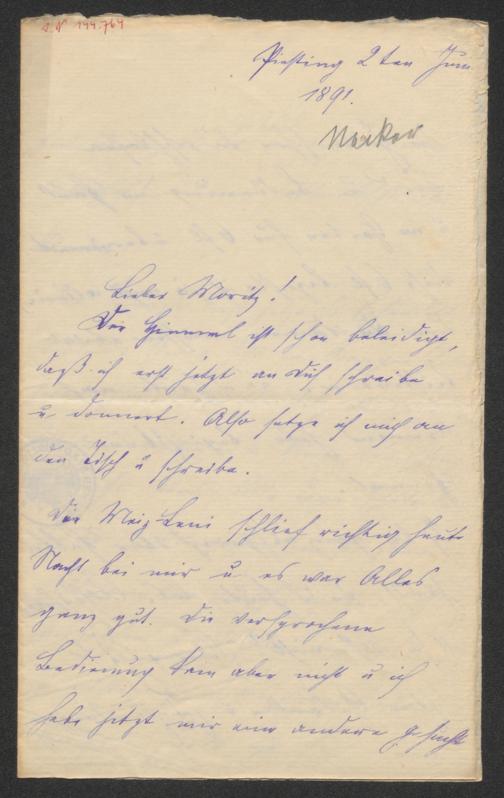 I. N. 144.764
Piesting 2ten Juni
1891.
Lieber Moritz!
Der Himmel ist schon beleidigt,
daß ich erst jetzt an Dich schreibe
u donnert. Also setze ich mich an
den Tisch u schreibe.
Die Leni schlief richtig heute
Nacht bei mir u es war Alles
ganz gut. Die versprochene
Bedienung kam aber nicht u ich
habe jetzt mir eine andere gesucht